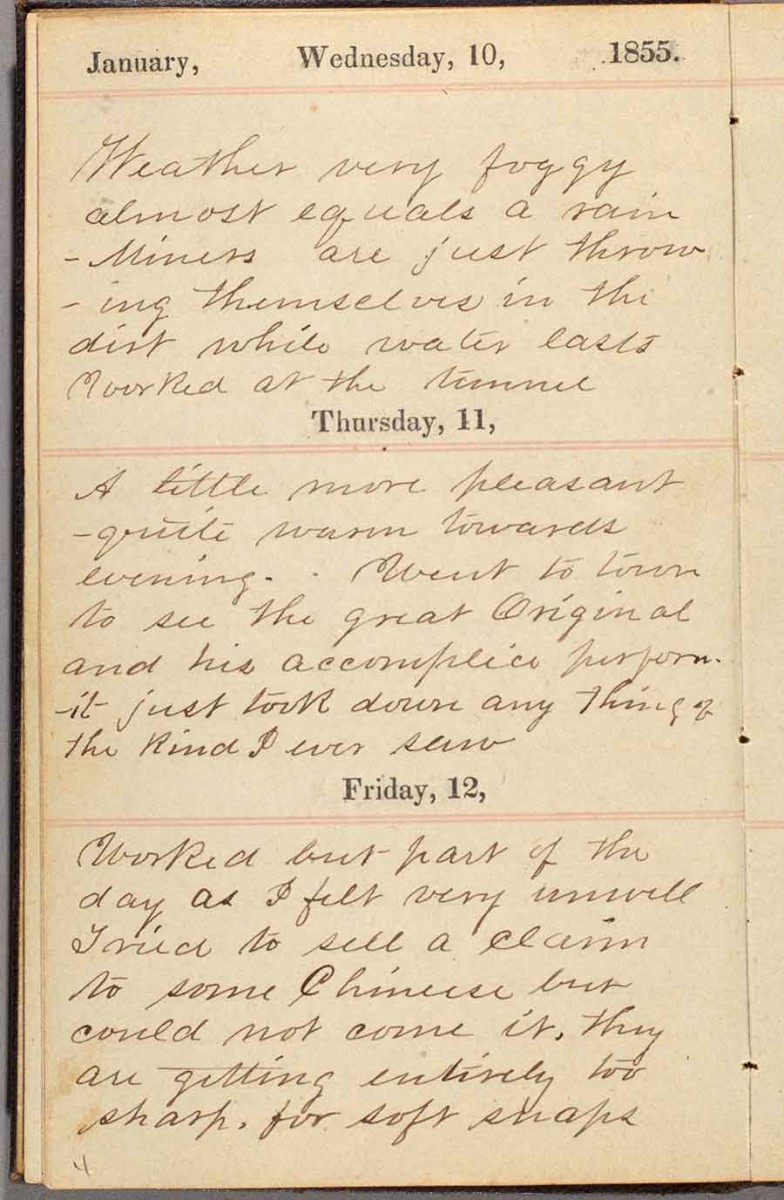 January, Wednesday, 10, 1855.
Weather very foggy
almost equals a rain
- Miners are just throw
- ing themselves in the
dirt while water lasts
Worked at the tunnel
Thursday, 11,
A little more pleasant
- quite warm towards
evening. . Went to town
to see the great Original
and his accomplice perform.
- it just took down any thing of
the kind I ever saw
Friday, 12,
Worked but part of the
day as I felt very unwell
Tried to sell a claim
to some Chineese but
could not come it. they
are getting entirely too
sharp. for soft snaps
4